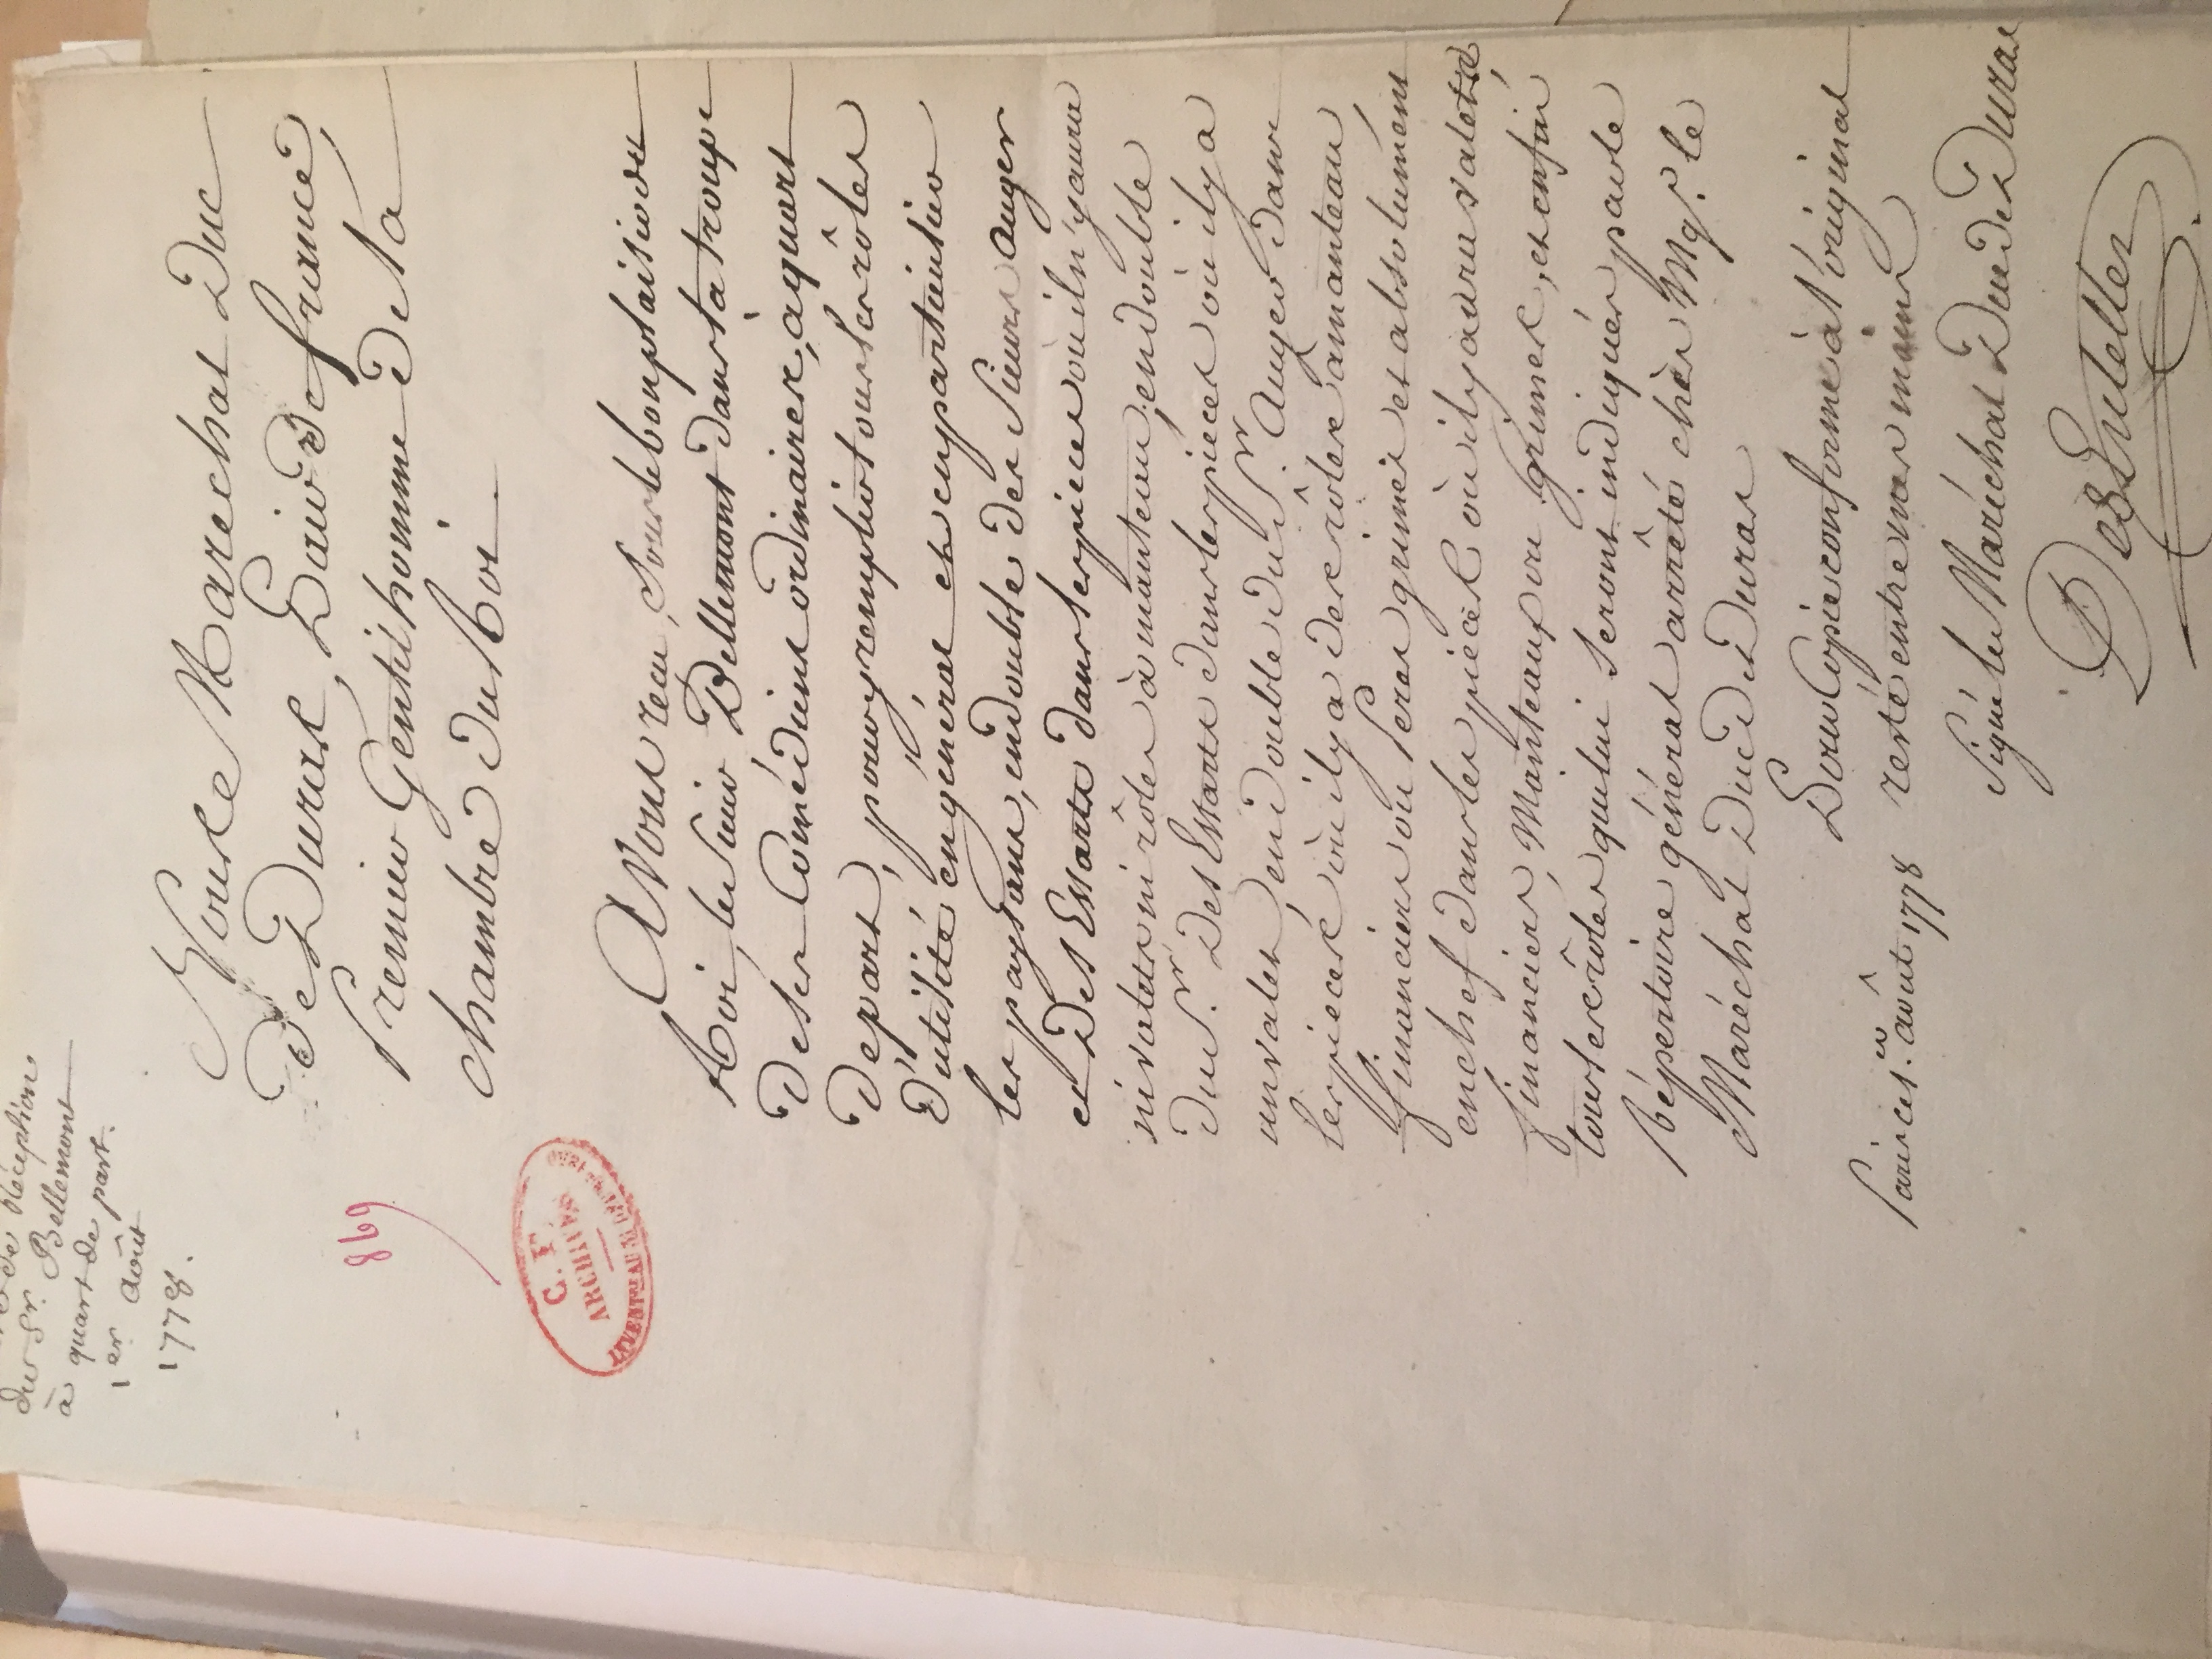 de Réception
du Sr. Bellemont
à quart de part.
1er Août
1778.
Nous le Marechal Duc
De Duras, Pair de france,
Premier Gentilhomme de la
chambre du Roi.
869
C. F.
ARCHIVES
Avons recu, sous le bon plaisir du
Roi, le Sieur Bellemont dans la troupe
de ses Comédiens ordinaires, à quart
de part, pour y remplir tous les rôles
d'utilité en général et en particulier
les paysans, en double des Sieurs Auger
et Des Essarts dans les pieces où il n'y aura
ni valets ni rôles à manteau; en double
du Sr. Des Essarts dans les piéces où il y a
un valet, en double du Sr. Auger dans
les pieces où il y a des rôles à manteau,
financiers ou Peres grimés et absolument
en chef dans les pieces où il y aura valets,
financiers, Manteaux ou grimes, et enfin
tous les rôles qui lui seront indiqués par le
Répertoire général arrêté chès Mgr. le
Maréchal Duc De Duras
Pour Copie conforme à l'original
resté entre mes mains
Paris ce 1.er août 1778
Signé le Maréchal Duc De Duras
Des Entelles